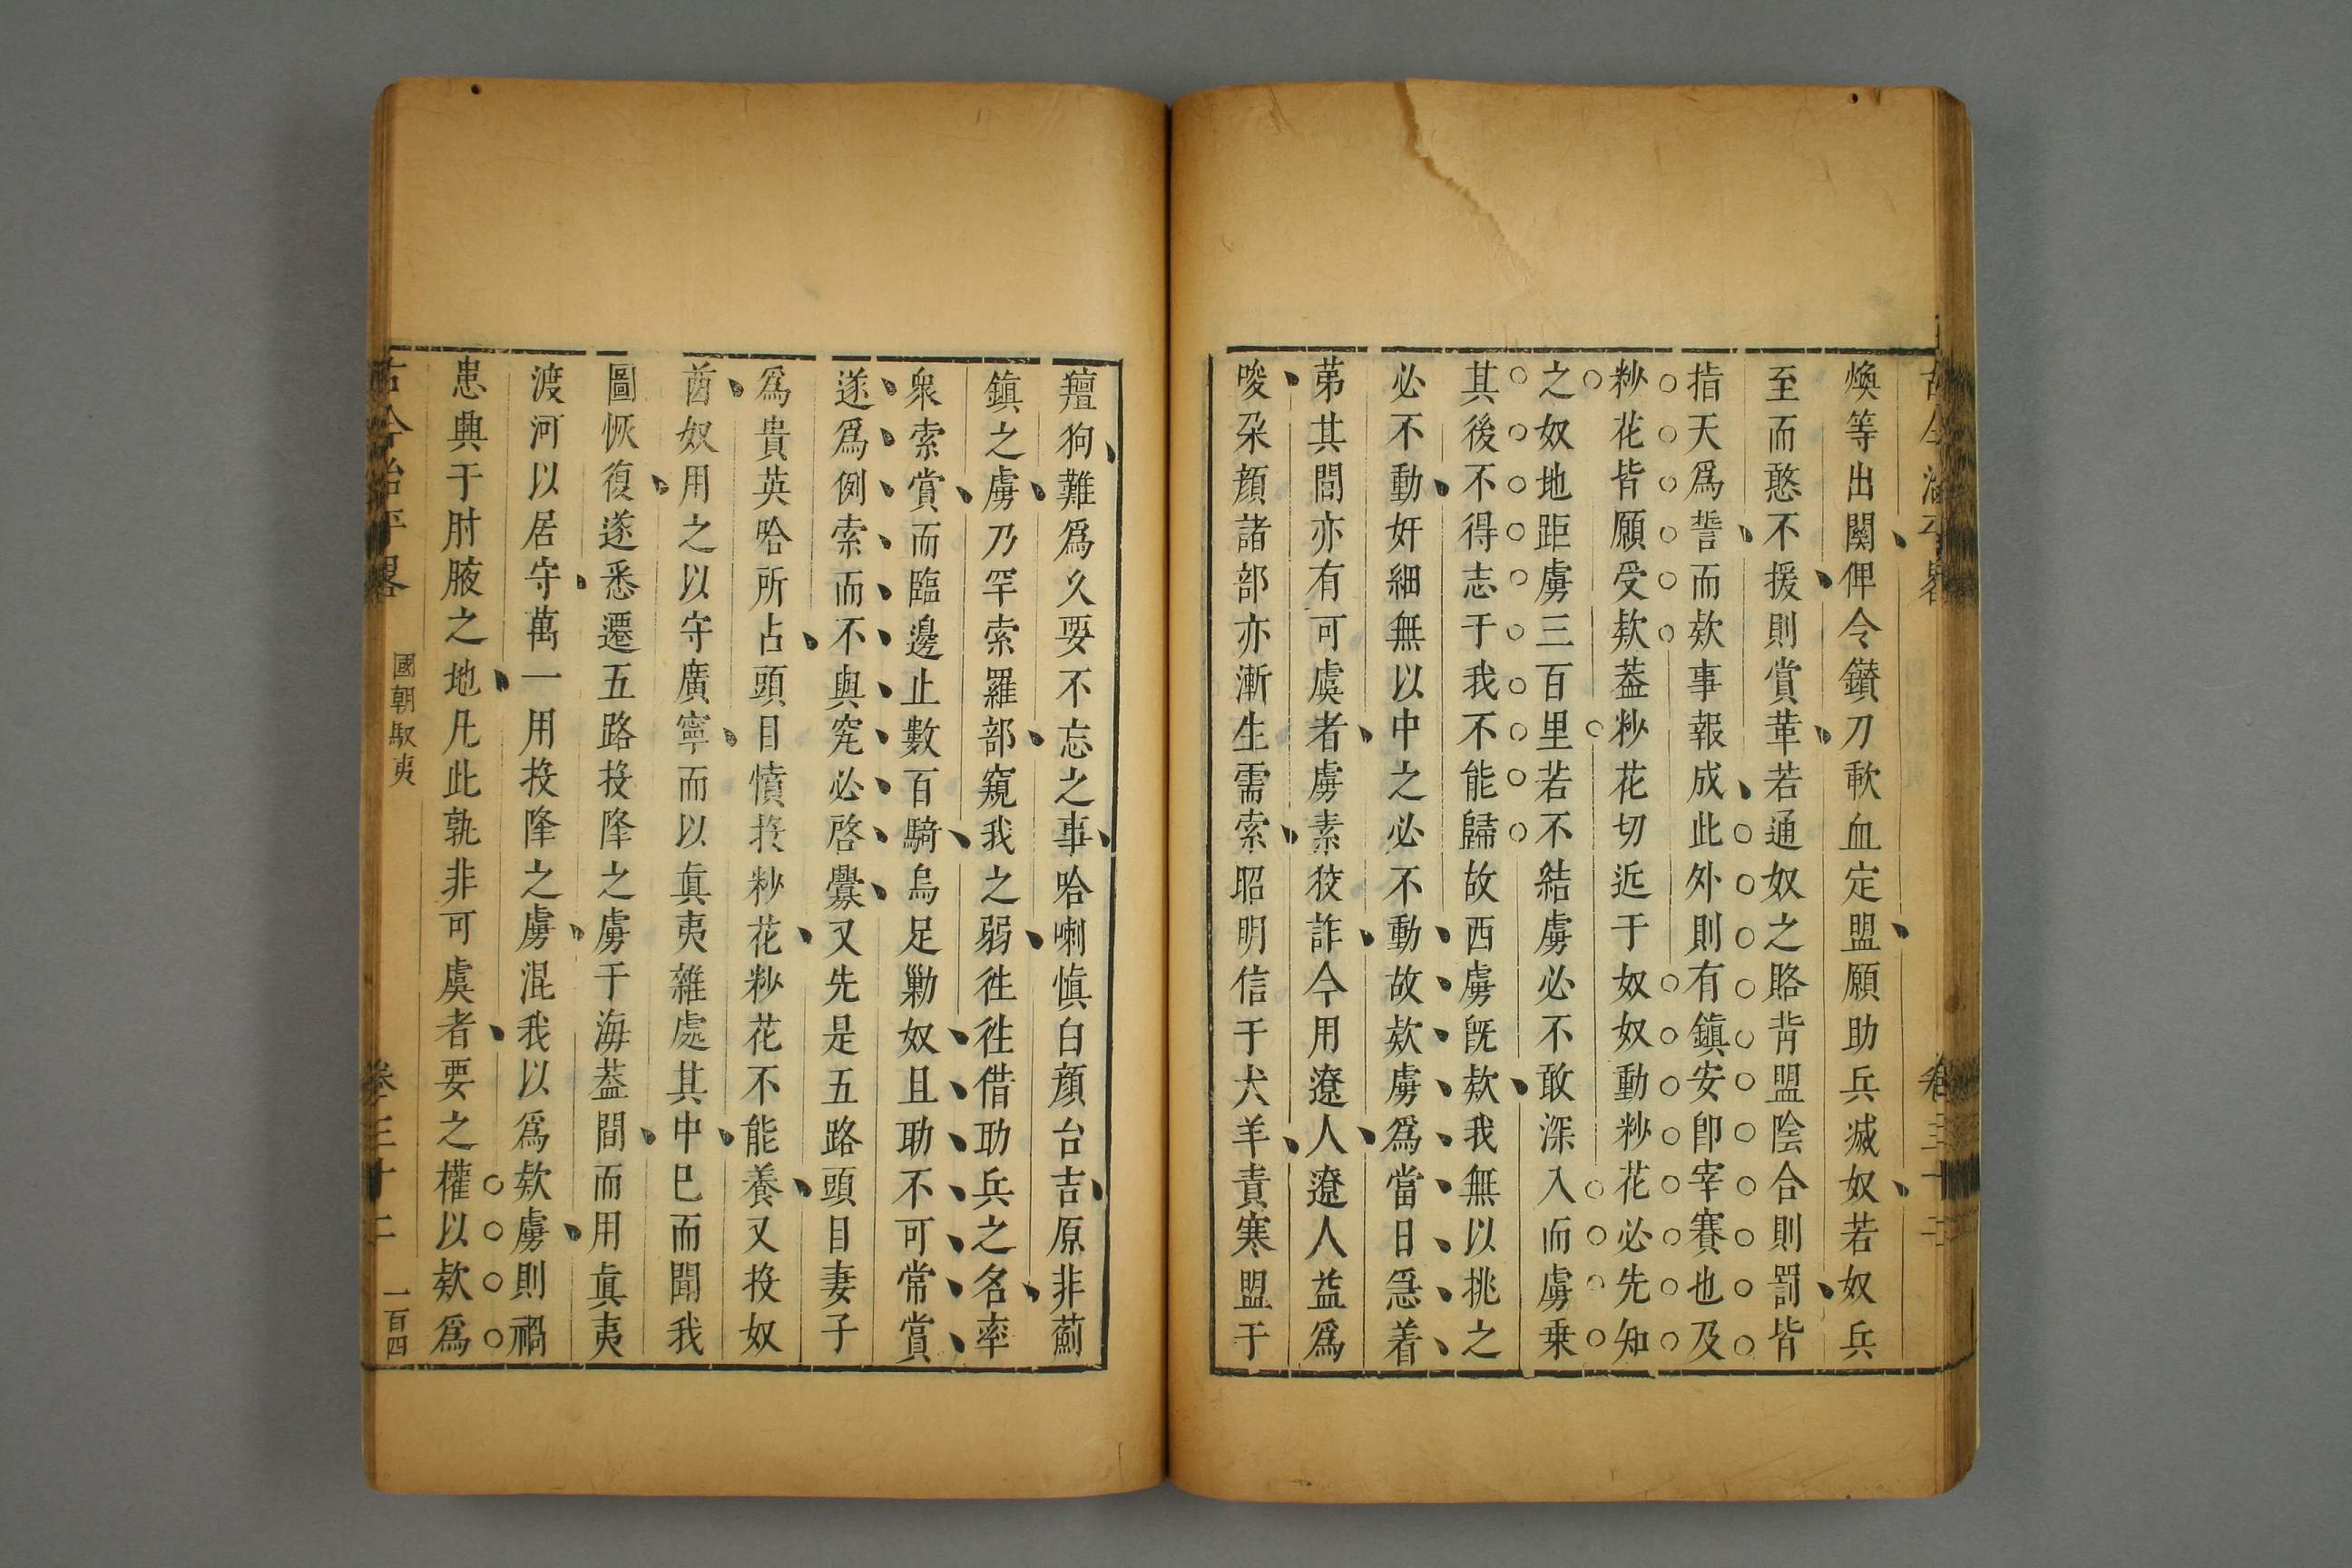 煥等出關俾令鑚刀歃血定盟願助兵滅奴若奴兵
至而憨不援則賞革若通奴之賂背盟陰合則罰皆
指天爲誓而欵事報成此外則有鎮安卽宰賽也及
粆花皆願受欵葢粆花切近于奴奴動粆花必先知
之奴地距虜三百里若不結虜必不敢深入而虜乗
其後不得志于我不能歸故西虜旣欵我無以挑之
必不動奸細無以中之必不動故欵虜爲當日急着
苐其間亦有可虞者虜素狡詐今用遼人遼人益爲
唆朶顔諸部亦漸生需索昭明信于犬羊責寒盟于
羶狗難爲久要不忘之事哈喇愼白顔台吉原非薊
鎮之虜乃罕索羅部窺我之弱徃徃借助兵之名率
衆索賞而臨邊止數百騎烏足勦奴且助不可常賞
遂爲例索而不與究必啓釁又先是五路頭目妻子
爲貴英哈所占頭目憤投粆花粆花不能養又投奴
酋奴用之以守廣寧而以眞夷雜處其中巳而聞我
圖恢復遂悉遷五路投降之虜于海葢間而用眞夷
渡河以居守萬一用投降之虜混我以爲欵虜則禍
患興于肘腋之地凡此孰非可虞者要之權以欵爲
古今治平畧 國朝馭夷 卷三十二 一百四